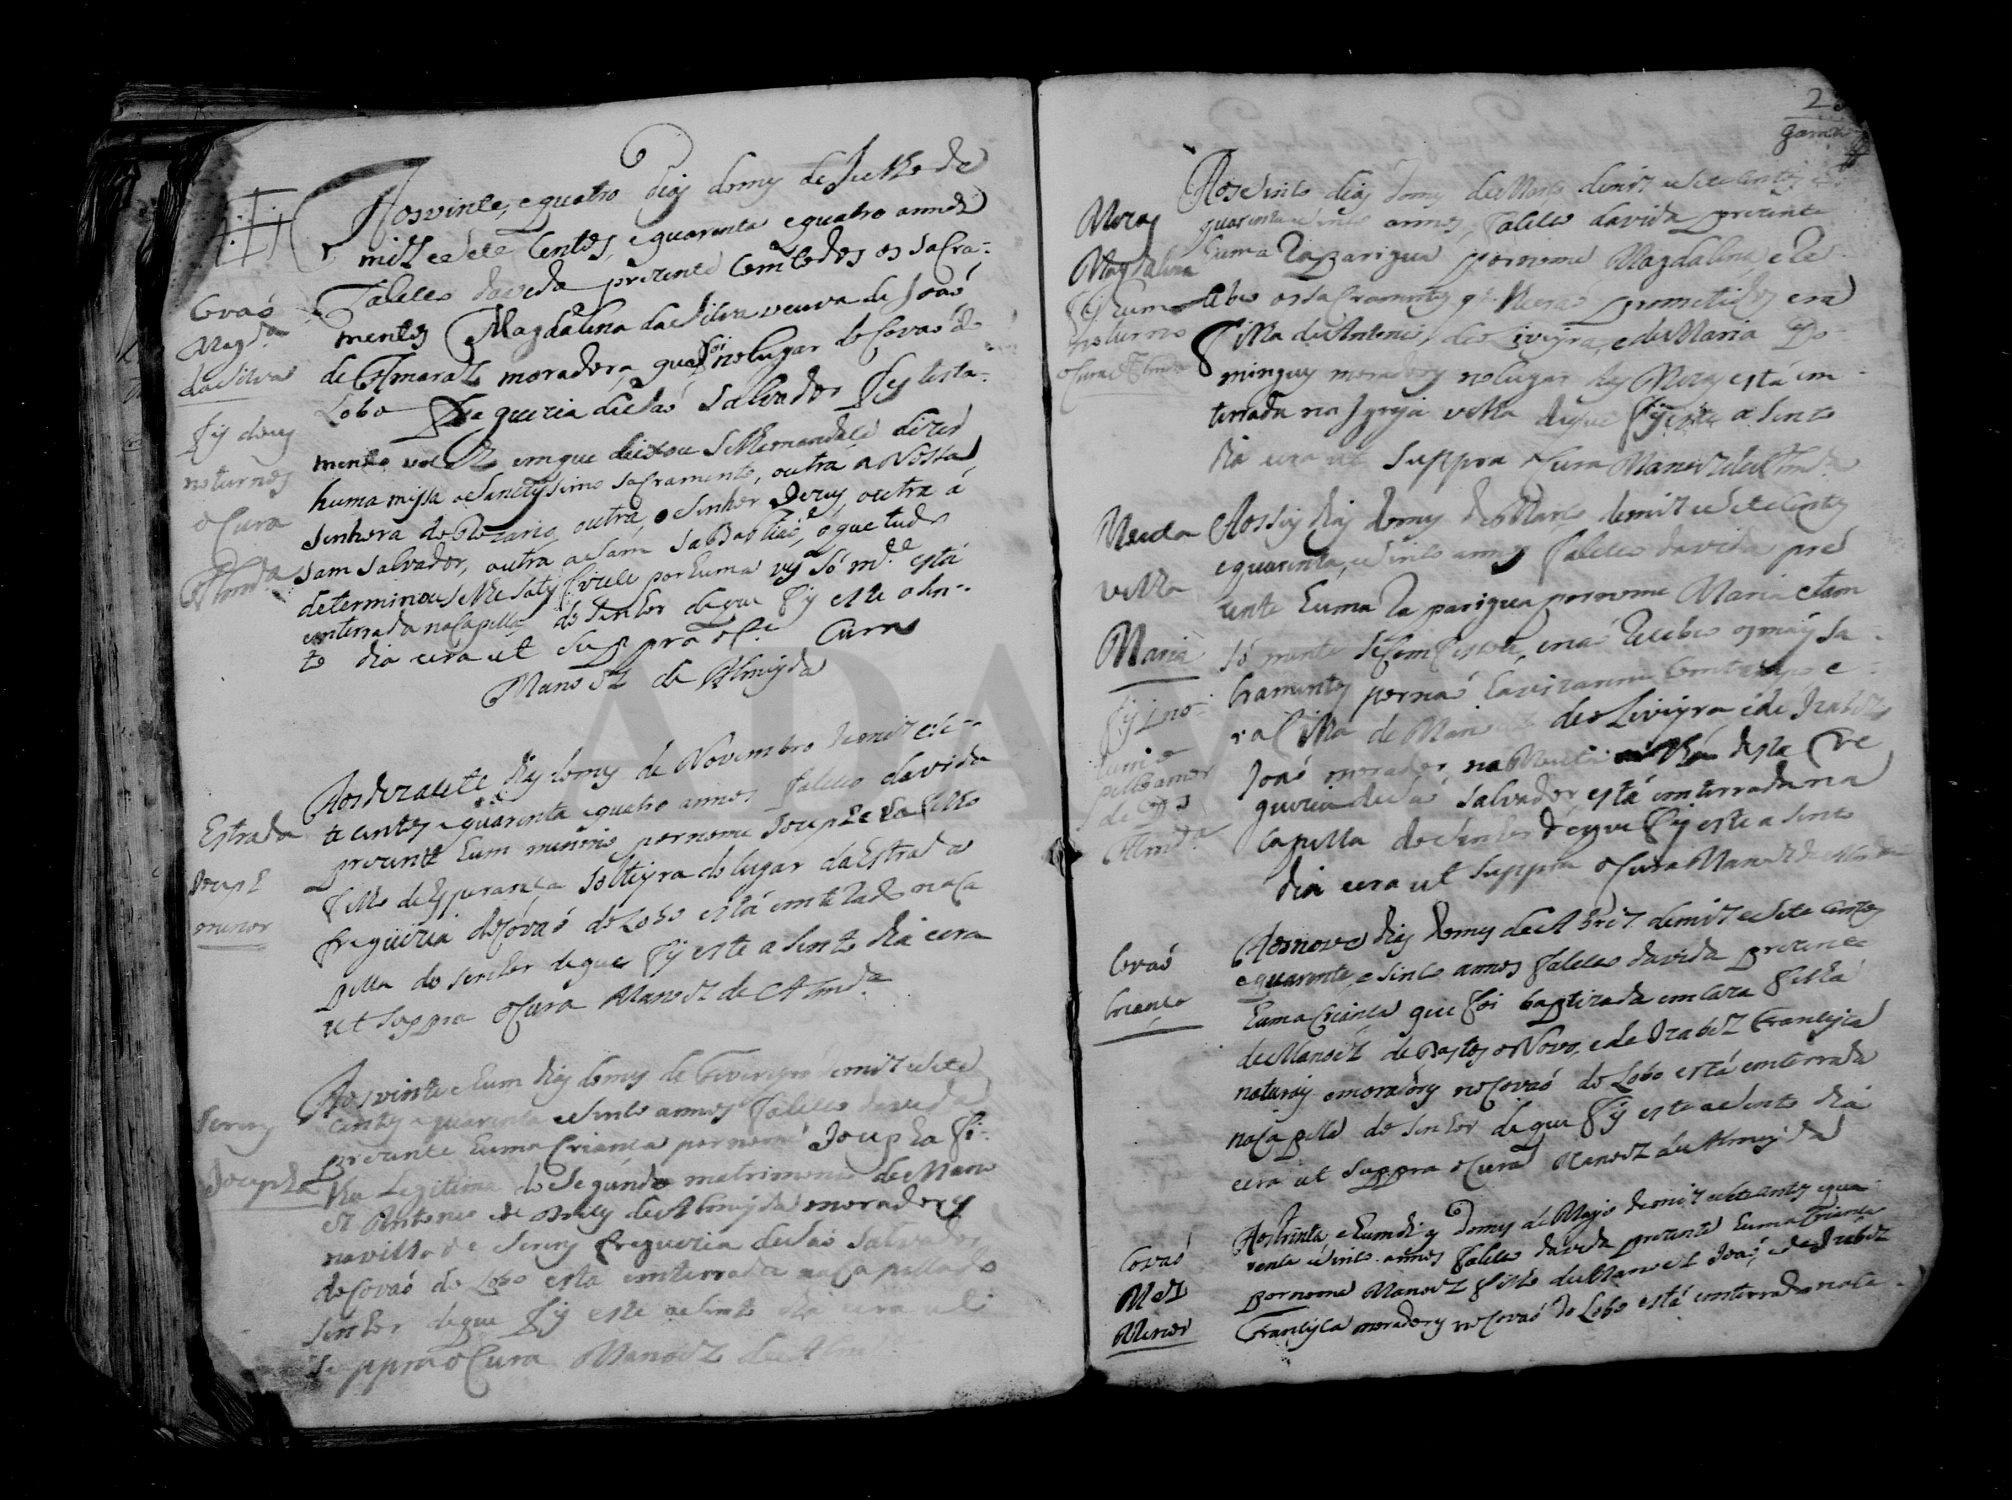 Aos vinte, e quatro dias do mes de Julho de
mil e sete centos, e quarenta e quatro annos
Faleceo da vida prezente com todos os sacra-
mentos Magdalena da Silva veuva de Joaó
de Amaral moradora que foi no lugar do Covaó do
Lobo Freguezia de Saó Salvador fes testa-
mento vocal em que deixou se lhe mandace dizer
huma missa o Sanctissimo sacramento, outra a Nossa
Senhora do Rozario, outra, o Senhor Jezus, outra á
sam Salvador, outra a Sam Sabastiaó, e que tudo
determinou se lhe satisficece por huma ves só mde está
enterrada na Capella do Senhor de que fis este asen-
to dia era ut suppra o Cura
Manoel de Almeyda
Covaó
Magda
da Silva
fes dous
noturnos
o Cura
Almda
Aos dezasete dias do mes de Novembro de mil e se-
te centos e quarenta e quatro annos Faleceo da vida
prezente hum minino por nome Joceph
filho de Esperança solteyra do lugar da Estrada
freguezia do Covaó do Lobo está enterrado na Ca
pella do Senhor de que fis este asento dia era
ut suppra o Cura Manoel de Almda
Estrada
Joceph
menor
Aos vinte e hum dias do mes de Fevereyro de mil e sete
centos e quarenta e sinco annos Faleceo da vida
prezente huma crianca por nome Jocepha fi-
lha Legitima do Segundo matrimonio de Mano
el Antonio e de de Almeyda moradores
na villa de Sorens freguezia de Saó Salvador
do Covaó do Lobo está enterrada na Capella do
Senhor de que fis este asento dia era ut
suppra o Cura Manoel de Alm
Jocepha
23
Aos sinco dias do mes de Março de mil e sete centos e
quarenta e sinco annos, Faleceo da vida prezente
huma Rapariga por nome Magdalena e Re-
cebeo os sacramentos que lhe eraó promitidos era
filha de Antonio de Oliveyra e de Maria Do-
mingues moradores no lugar das Moras está en-
terrada na Igreja velha de que fis este asento
dia era ut suppra o Cura Manoel de Almda
Moras
Magdalena
fes hum
noturno
o Cura Almda
Aos seis dias do mes de Março de mil e sete centos
e quarenta, e sinco annos Faleceo da vida pre
zente huma Raparigua por nome Maria e tam
só mente se comfesou, e naó Recebeo os mais sa-
cramentos por naó haver tempo e
ra filha de Manoel de Oliveyra e de Izabel
Joaó morador na desta fre
guezia de Saó Salvador está enterrada na
Capella do Senhor de que fis este asento
dia era ut suppra o Cura Manoel de Almda
velha
Maria
pello amor
de Ds
Almda
Aos nove dias do mes de Abril de mil e sete centos
e quarenta, e sinco annos Faleceo da vida prezente
huma crianca que foi baptizada em caza filha
de Manoel de Bastos o Novo, e de Izabel Francisca
naturais e moradores no Covaó do Lobo está enterrada
na Capella do Senhor de que fis este asento dia
era ut suppra o Cura Manoel de Almeyda
Covaó
criança
Aos trinta, e hum dias do mes de Mayo de mil e sete centos e qua-
renta e sinco annos Faleceo da vida prezente huma crianca
por nome Manoel filho de Manoel Joaó, e de Izabel
Francisca moradores no Covaó do Lobo está enterrado na Ca-
Covaó
Mel
Menor